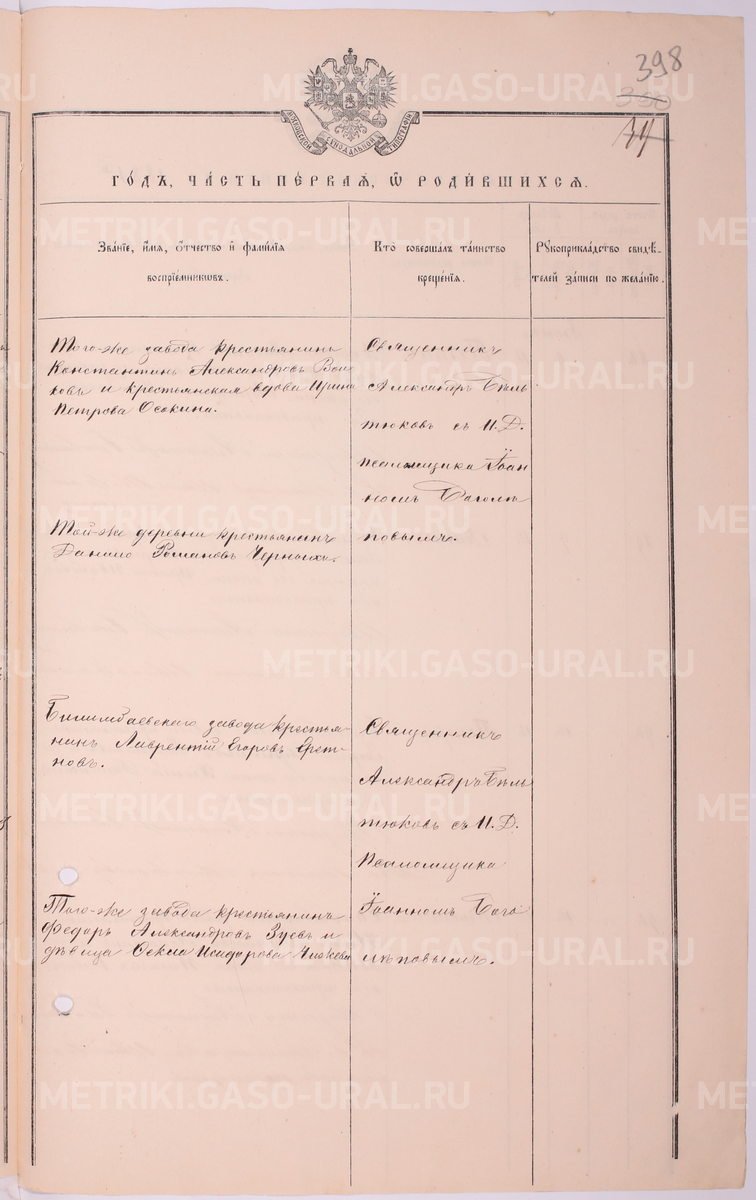 398
ГО́ДЪ, ЧА́СТЬ ПЕ́РВАЯ, Ѡ҆ РОДИ́ВШИХСЯ.
Зва́нїе, и҆́мя, ѻ҆́тчество и҆ фами́лїя
воспрїе́мниковъ.
Кто̀ соверша́лъ та́инство
креще́нїя.
Рꙋкоприкла́дство свидѣ́-
телей за́писи по жела́нїю.
Того-же завода крестьянинъ
Константинъ Александровъ Вои-
ковъ и крестьянская вдова Ирина
Петрова Осокина.
Священникъ
Александръ Бѣль
тюковъ съ И. Д.
псаломщика Іоан
номъ Боголѣ
повымъ.
Той-же деревни крестьянинъ
Данило Романовъ Черныхъ.
Билимбаевскаго завода крестья-
нинъ Лаврентій Егоровъ
новъ.
Священникъ
Александръ Бѣль
тюковъ съ И. Д.
Псаломщика
Іоанномъ Бого
лѣповымъ.
Того-же завода крестьянинъ
Федоръ Александровъ Зуевъ и
дѣвица Ѳекла Исидорова
METRIKI.GASO-URAL.RU